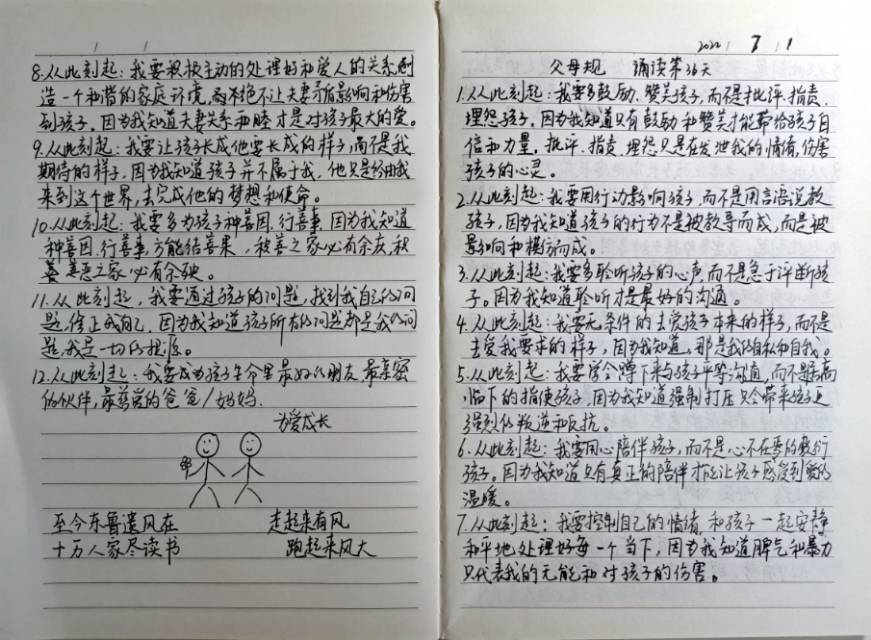 8.从此刻起：我要积极主动的处理好和爱人的关系，创
造一个和谐的家庭环境，绝不让夫妻矛盾影响和伤害
到孩子。因为我知道夫妻关系和睦才是对孩子最大的爱。
9.从此刻起：我要让孩子长成他要长成的样子，而不是我
期待的样子。因为我知道孩子并不属于我，他只是经由我
来到这个世界，去完成他的梦想和使命。
10.从此刻起：我要多为孩子种善因，行善事，因为我知道
种善因，行善事，方能结善果，积善之家必有余庆，积
恶之家必有余殃。
11.从此刻起，我要通过孩子的问题，找到我自己的问
题，修正我自己，因为我知道孩子所有的问题都是我的问
题，我是一切的根源。
12.从此刻起：我要成为孩子生命里最好的朋友，最亲密
的伙伴，最慈爱的爸爸/妈妈.
为爱成长
至今东鲁遗风在 走起来有风
十万人家尽读书 跑起来风大
2022 7 1
父母规 诵读第36天
1.从此刻起：我要多鼓励、赞美孩子，而不是批评、指责、
埋怨孩子。因为我知道只有鼓励和赞美才能带给孩子自
信和力量，批评、指责、埋怨只是在发泄我的情绪，伤害
孩子的心灵。
2.从此刻起：我要用行动影响孩子，而不是用言语说教
孩子，因为我知道孩子的行为不是被教导而成，而是被
影响和模仿而成。
3.从此刻起：我要多聆听孩子的心声，而不是急于评断孩
子。因为我知道聆听才是最好的沟通。
4.从此刻起：我要无条件的去爱孩子本来的样子，而不是
去爱我要求的样子，因为我知道，那是我的自私和自我。
5.从此刻起：我要学会蹲下来与孩子平等沟通，而不是居高
临下的指使孩子，因为我知道强制打压只会带来孩子更
强烈的叛逆和反抗。
6.从此刻起：我要用心陪伴孩子，而不是心不在焉的敷衍
孩子。因为我知道只有真正的陪伴才能让孩子感受到爱的
温暖。
7.从此刻起：我要控制自己的情绪，和孩子一起安静
和平地处理好每一个当下，因为我知道脾气和暴力
只代表我的无能和对孩子的伤害。